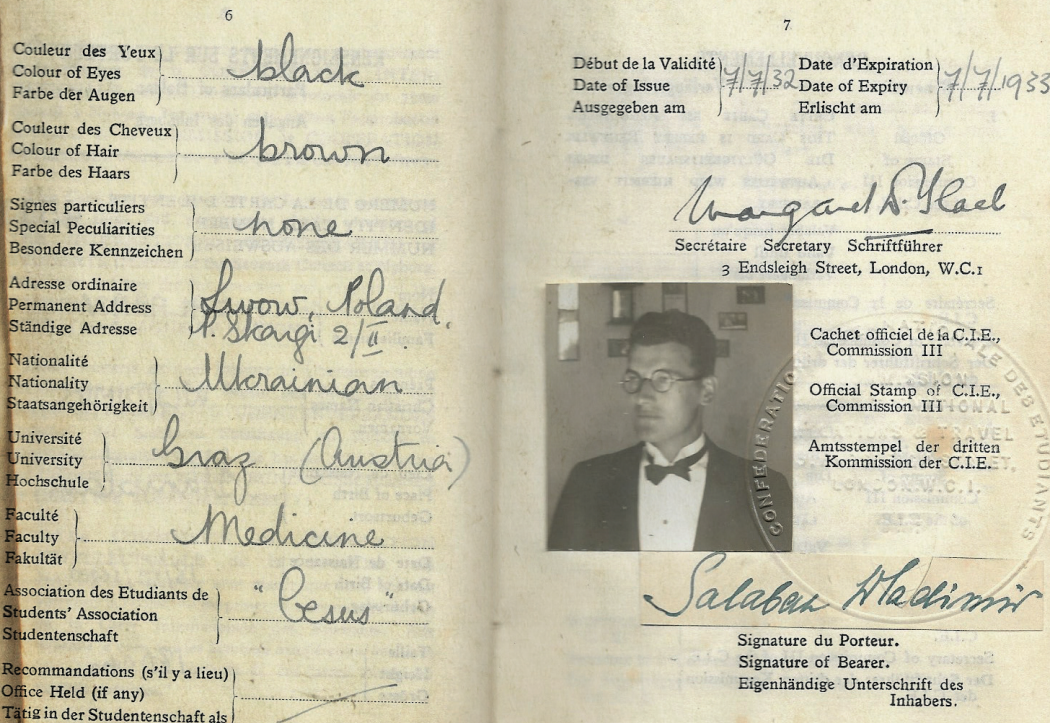 6
Couleur des Yeux
Colour of Eyes
Farbe der Augen
black
Couleur des Cheveux
Colour of Hair
Farbe des Haars
brown
Signes particuliers
Special Peculiarities
Besondere Kennzeichen
none
Adresse ordinaire
Permanent Address
Ständige Adresse
Lwow, Poland.
P. Skargi 2/II.
Nationalité
Nationality
Staatsangehörigkeit
Ukrainian
Université
University
Hochschule
Graz (Austria)
Faculté
Faculty
Fakultät
Medicine
Association des Etudiants de
Students' Association
Studentenschaft
"Cesus"
Recommandations (s'il y a lieu)
Office Held (if any)
Tätig in der Studentenschaft als
7
Début de la Validité
Date of Issue
Ausgegeben am
7/7/32
Date d'Expiration
Date of Expiry
Erlischt am
7/7/1933
Margaret
Secrétaire Secretary Schriftführer
3 Endsleigh Street, London, W.C.1
Cachet officiel de la C.I.E.,
Commission III
Official Stamp of C.I.E.,
Commission III
Amtsstempel der dritten
Kommission der C.I.E.
CONFEDERATION
DES ETUDIANTS
TRAVEL
LONDON.W.C.1.
Wladimir
Signature du Porteur.
Signature of Bearer.
Eigenhändige Unterschrift des
Inhabers.